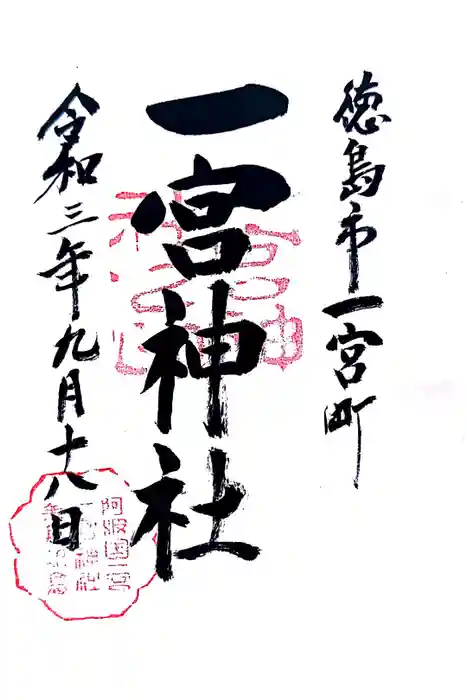 徳島市一宮町
一宮神社
令和三年九月十八日
阿波国一宮
一宮神社